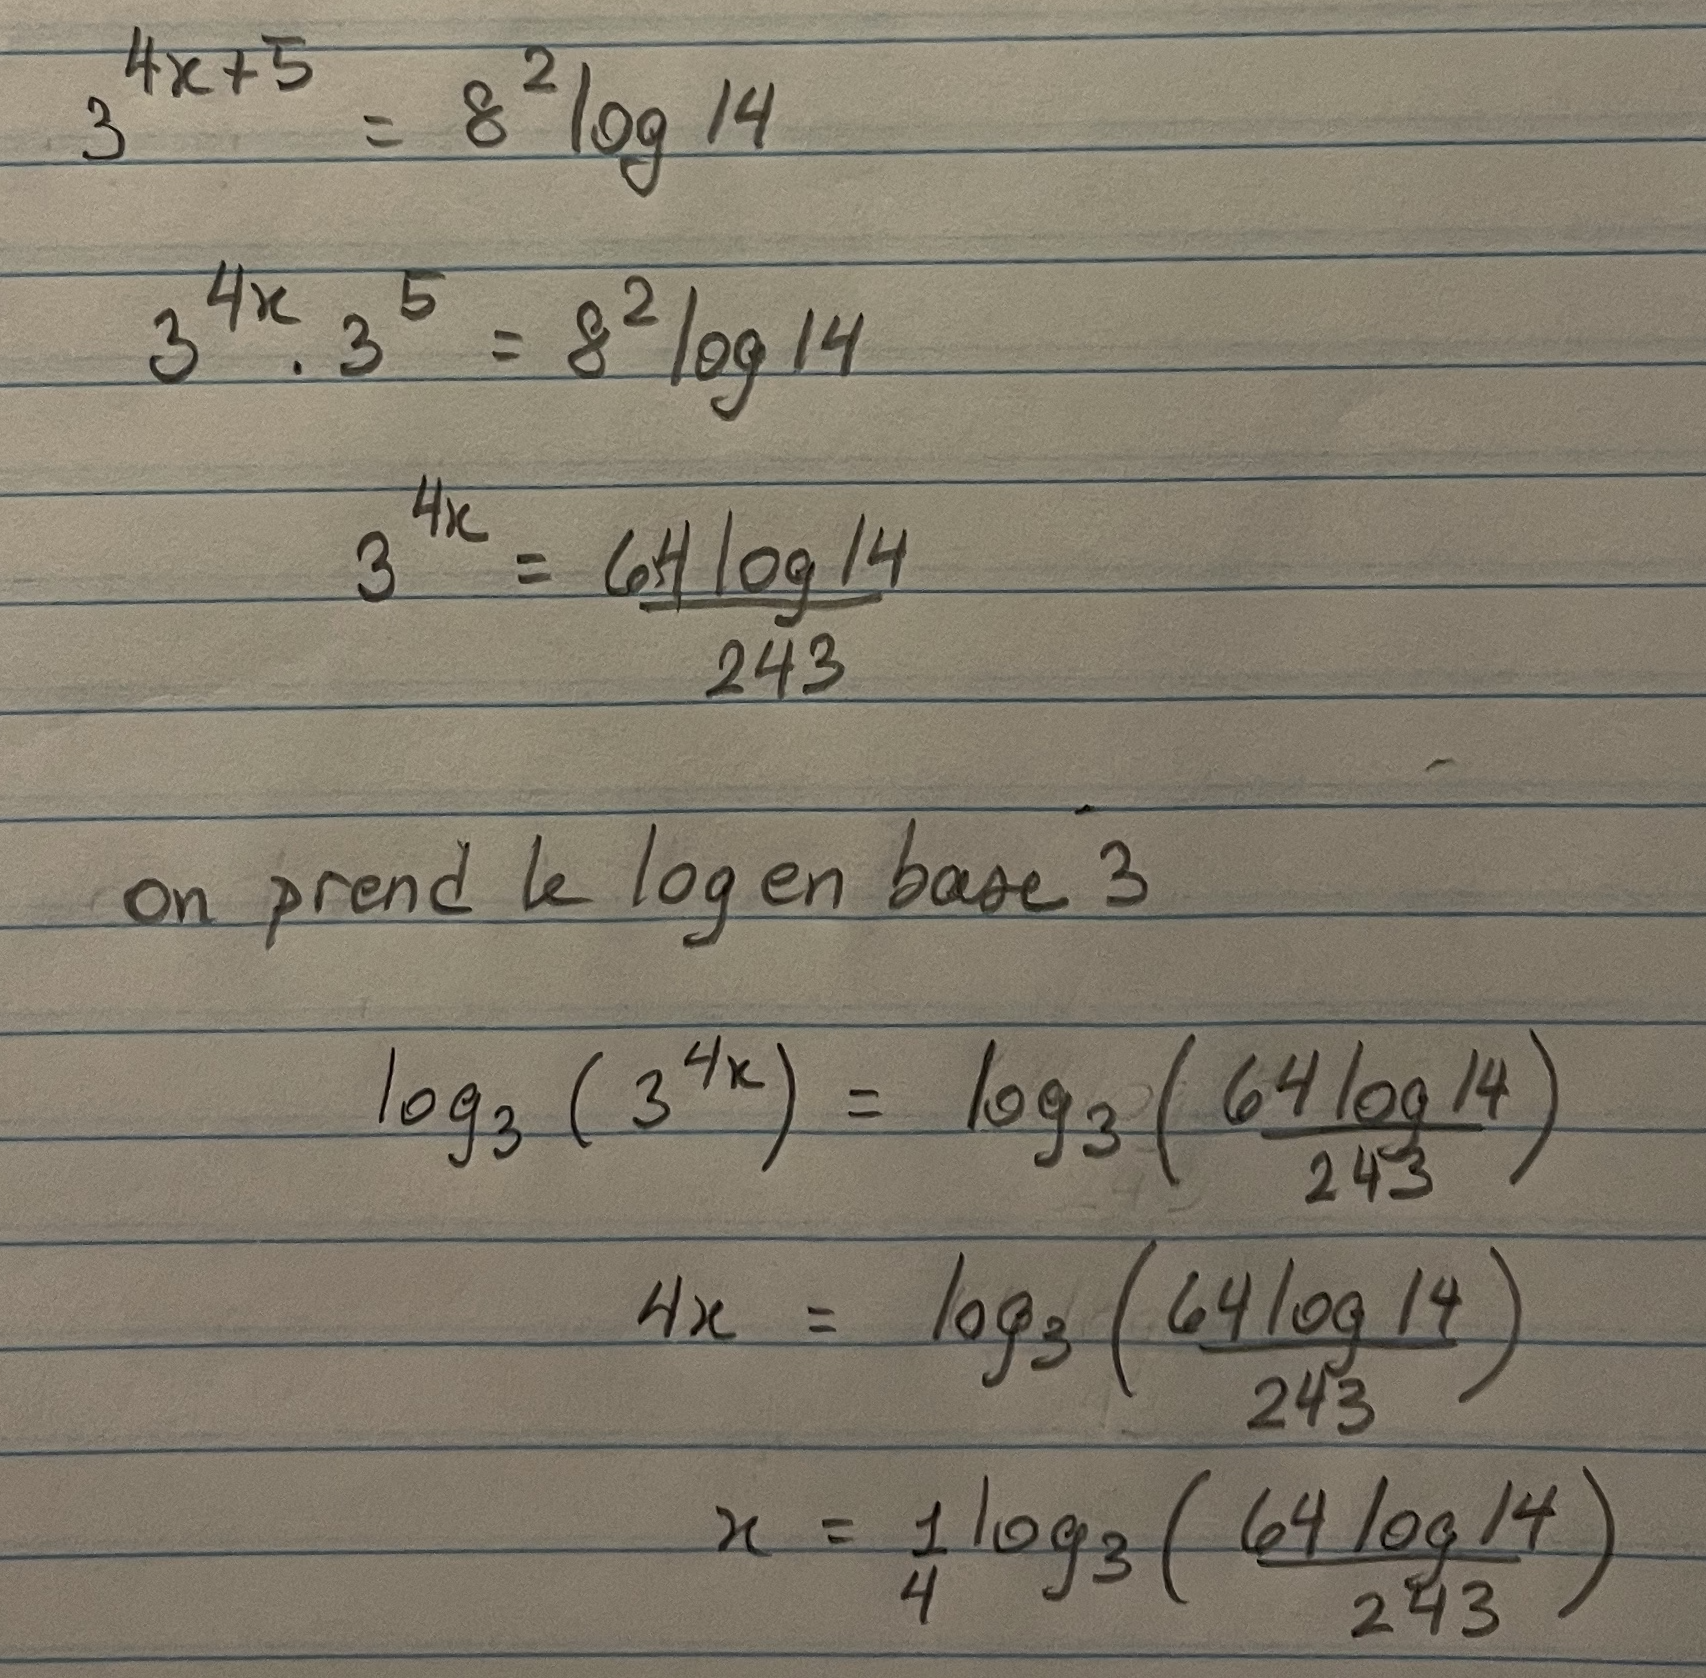 3^{4x+5} = 8^2 log 14
3^{4x} . 3^5 = 8^2 log 14
3^{4x} = \frac{64 log 14}{243}
on prend le log en base 3
log_3 (3^{4x}) = log_3 (\frac{64 log 14}{243})
4x = log_3 (\frac{64 log 14}{243})
x = \frac{1}{4} log_3 (\frac{64 log 14}{243})